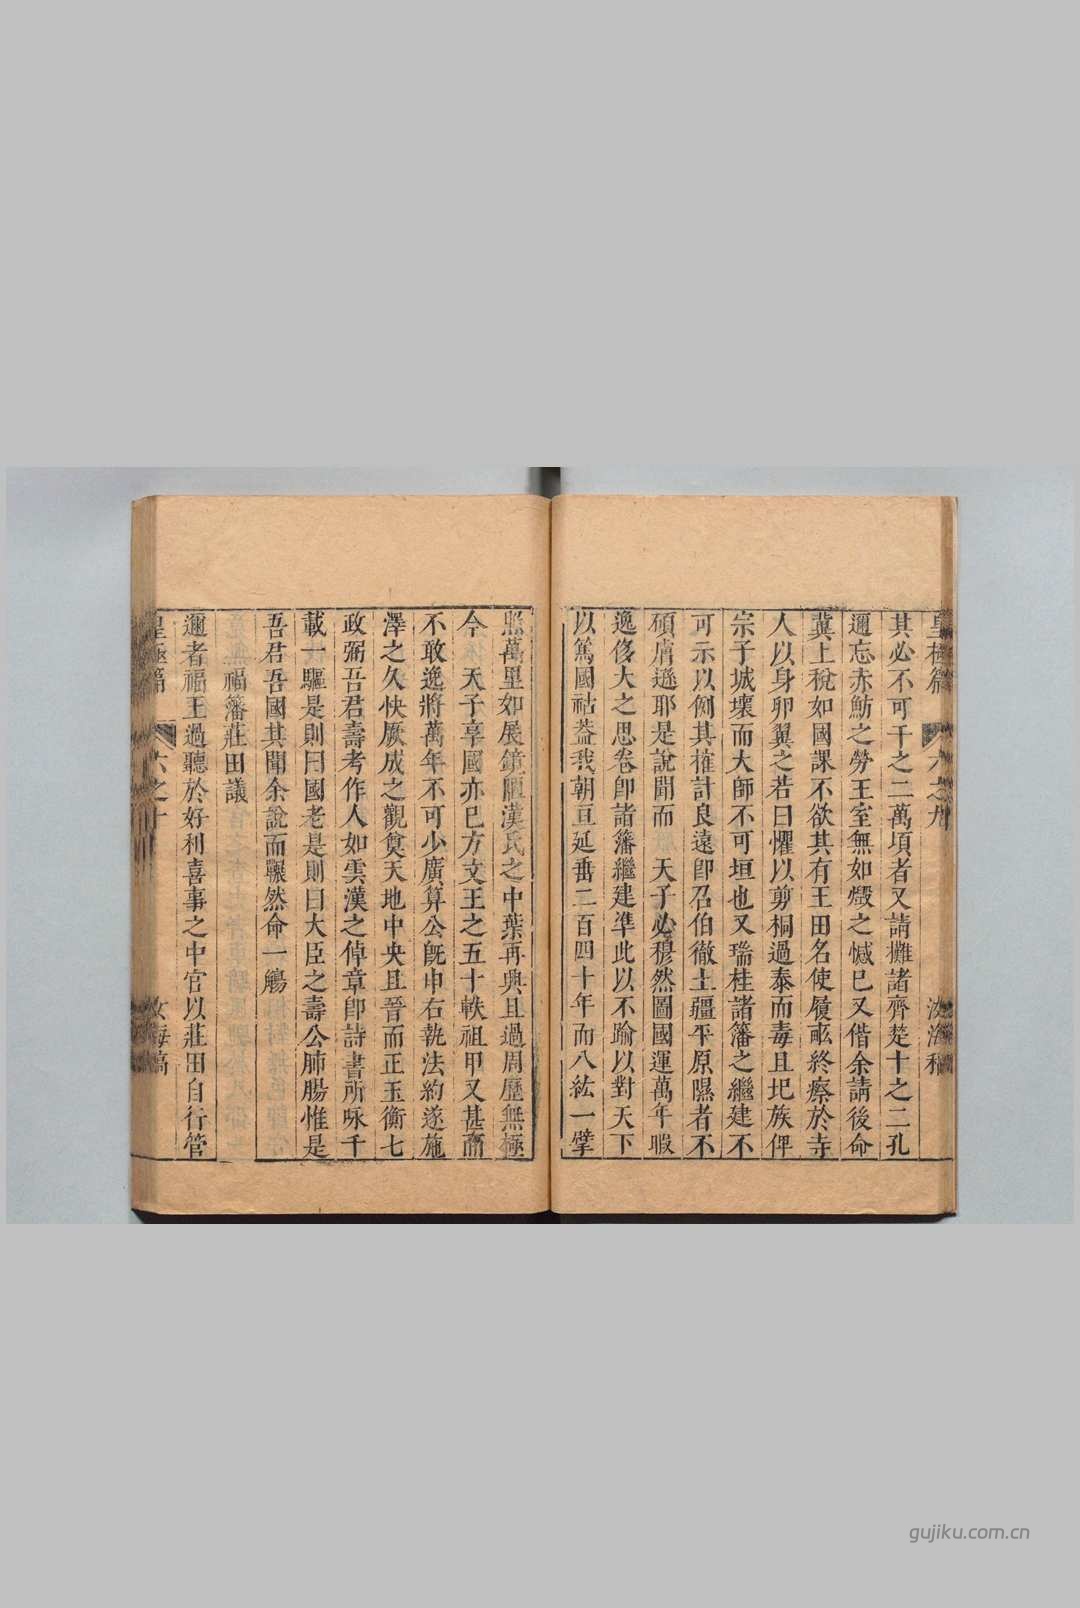 皇極篇 六之九 汝海稿
其必不可于之二萬頃者又請攤諸齊楚十之二孔
邇忘赤魴之勞王室無如燬之憾巳又偕余請後命
冀上稅如國課不欲其有王田名使履畝終瘵於寺
人以身卵翼之若曰懼以剪桐過泰而毒且圮族俾
宗子城壞而大師不可垣也又瑞桂諸籓之繼建不
可示以例其搉計良遠卽召伯徹土疆平原隰者不
碩膚遜耶是說聞而 天子必穆然圖國運萬年嘏
逸侈大之思卷卽諸籓繼建準此以不踰以對天下
以篤國祜葢我朝亘延畨二百四十年而八紘一擘
照萬里如展鏡陋漢氏之中葉再興且過周歷無極
今 天子享國亦巳方文王之五十軼祖甲又甚而
不敢逸將萬年不可少廣算公旣申右執法約遂施
澤之久快厥成之觀奠天地中央且晉而正玉衡七
政弼吾君壽考作人如雲漢之倬章卽詩書所咏千
載一驅是則曰國老是則曰大臣之壽公肺腸惟是
吾君吾國其聞余說而囅然命一觴
福籓莊田議
邇者福王過聽於好利喜事之中官以莊田自行管
皇極篇 六之十 汝海稿
gujiku.com.cn